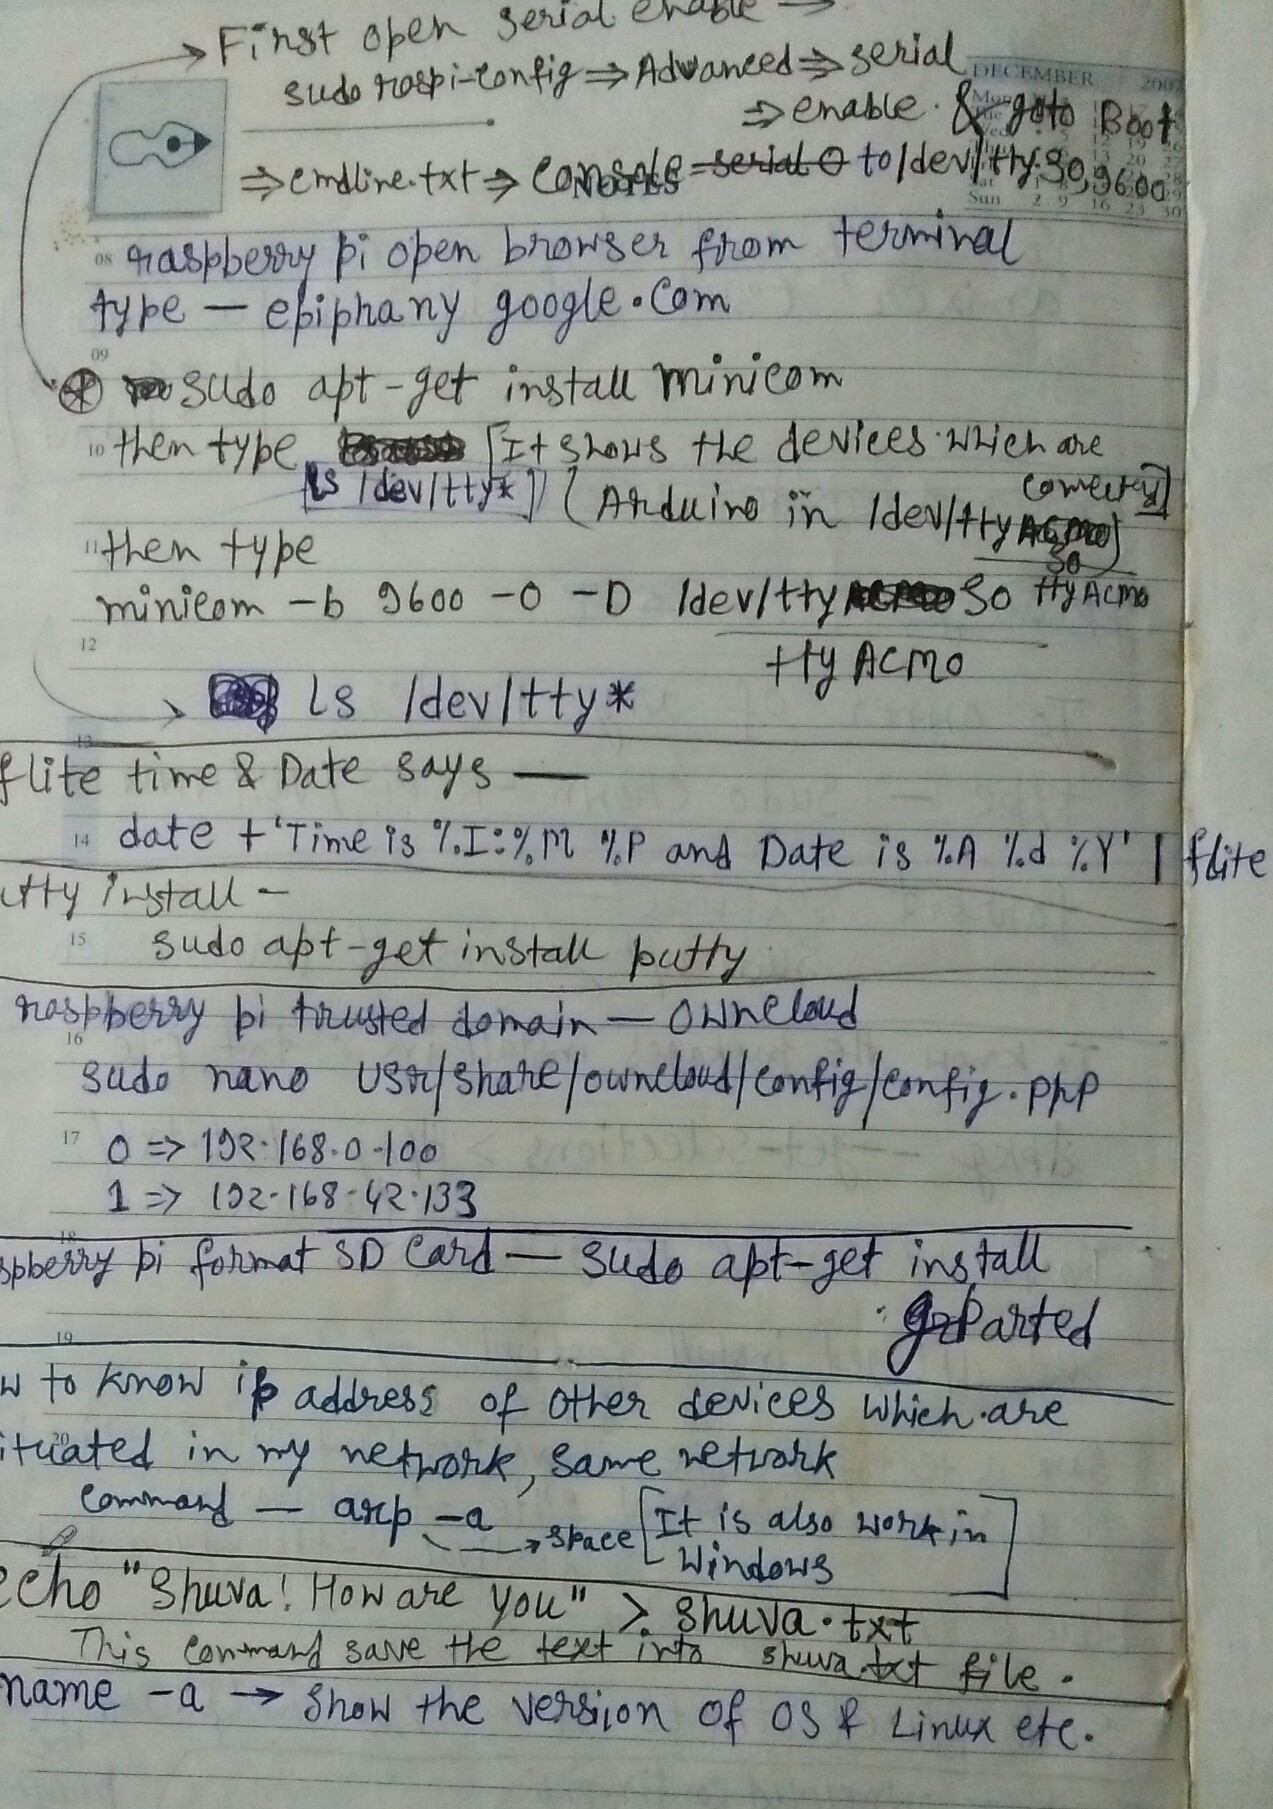 First open serial enable →
sudo raspi-config ⇒ Advanced ⇒ serial
DECEMBER 200
⇒ enable. & goto Boot
⇒ cmdline.txt ⇒ Console = serial 0 to /dev/tty S0,9600
Sun 2 9 16 23 30
08 raspberry pi open browser from terminal
type — epiphany google.com
09
sudo apt-get install minicom
10 then type [It shows the devices which are
[ls /dev/tty*]] (Arduino in /dev/tty ACM0)
S0
11 then type
minicom -b 9600 -o -D /dev/tty S0 ttyACM0
12
tty ACM0
Ls /dev/tty*
13
flite time & Date says —
14 date +'Time is %I:%M %P and Date is %A %d %Y' | flite
utty install -
15 sudo apt-get install putty
raspberry pi trusted domain — owncloud
16
sudo nano usr/share/owncloud/config/config.php
17 0 => 192.168.0.100
1 => 192.168.42.133
18
spberry pi format SD Card — sudo apt-get install
gparted
19
w to know ip address of other devices which are
20
ituated in my network, same network
command — arp -a → space [It is also work in
Windows]
echo "Shuva! How are you" > shuva.txt
This command save the text into shuva.txt file.
name -a → show the version of OS & Linux etc.